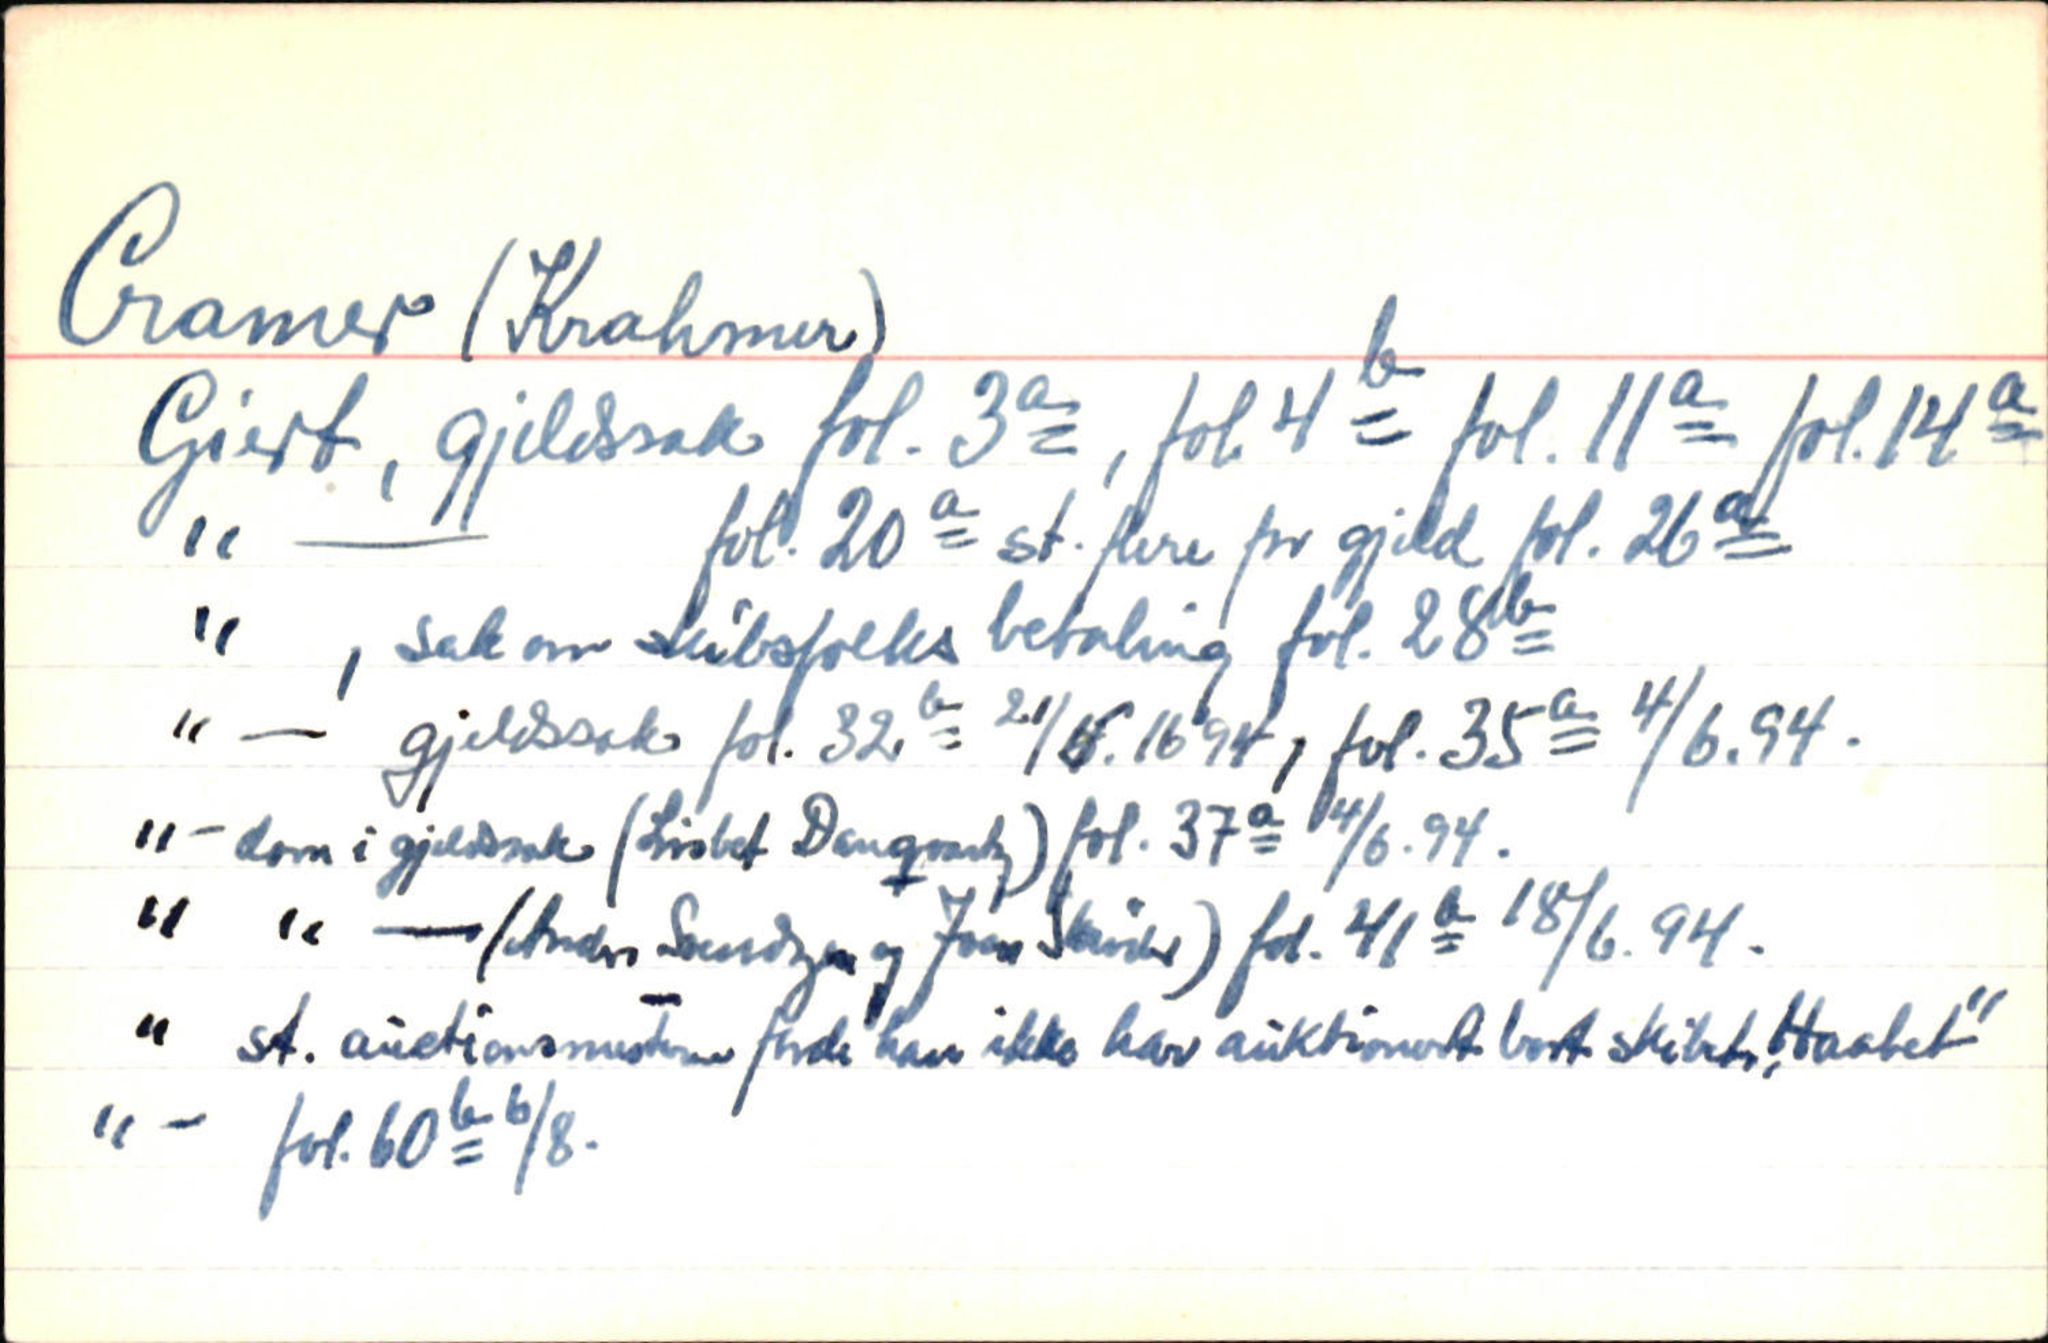 Cramer (Krahmer)
Giert, gjeldssak fol. 3a, fol. 4b fol. 11a fol. 14a
" — fol. 20a st. flere for gjeld fol. 26a
" , sak om skibsfolks betaling fol. 28b
" — gjeldssak fol. 32b 21/5. 1694, fol. 35a 4/6.94.
" — dom i gjeldssak (Lisbet Dangvartz) fol. 37a 4/6.94.
" " — (Anders og Joen) fol. 41a 18/6.94.
" st. auctionsmesteren fordi han ikke har auktionert bort skibet „Haabet"
" — fol. 60b 6/8.